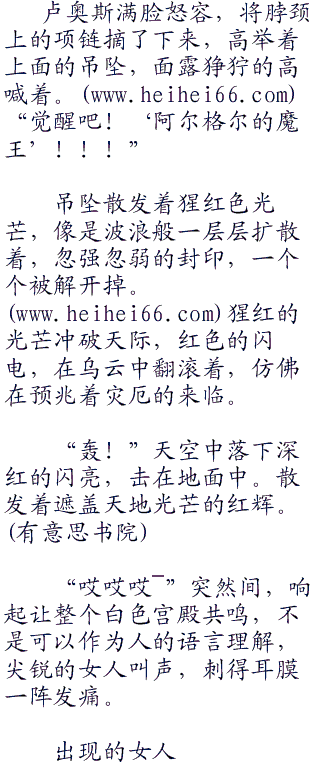 卢奥斯满脸怒容，将脖颈
上的项链摘了下来，高举着
上面的吊坠，面露狰狞的高
喊着。(www.heihei66.com)
“觉醒吧！‘阿尔格尔的魔
王’！！！”
吊坠散发着猩红色光
芒，像是波浪般一层层扩散
着，忽强忽弱的封印，一个
个被解开掉。
(www.heihei66.com)猩红的
光芒冲破天际，红色的闪
电，在乌云中翻滚着，仿佛
在预兆着灾厄的来临。
“轰！”天空中落下深
红的闪亮，击在地面中。散
发着遮盖天地光芒的红辉。
(有意思书院)
“哎哎哎‾”突然间，响
起让整个白色宫殿共鸣，不
是可以作为人的语言理解，
尖锐的女人叫声，刺得耳膜
一阵发痛。
出现的女人